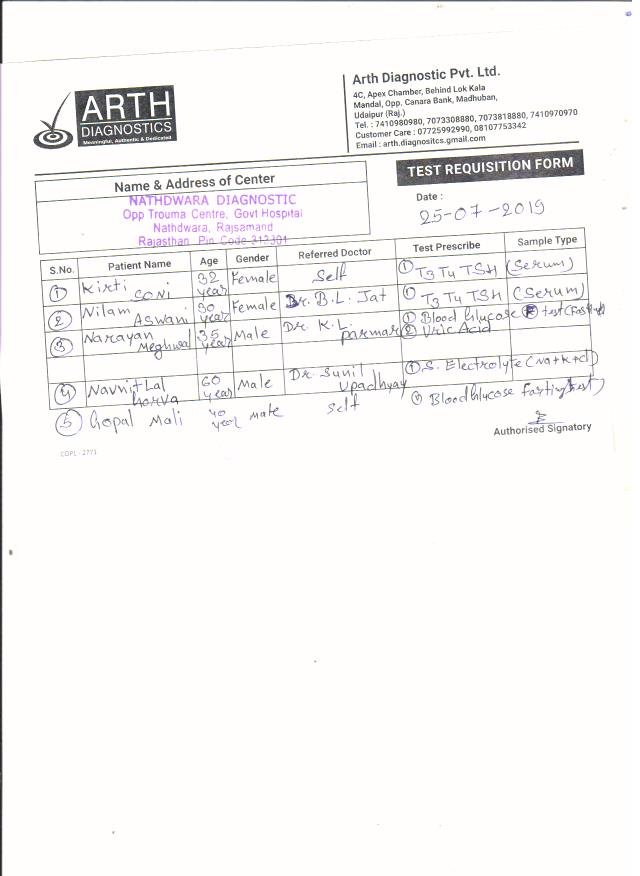 ARTH
DIAGNOSTICS
Meaningful, Authentic & Dedicated
Arth Diagnostic Pvt. Ltd.
4C, Apex Chamber, Behind Lok Kala
Mandal, Opp. Canara Bank, Madhuban,
Udaipur (Raj.)
Tel. : 7410980980, 7073308880, 7073818880, 7410970970
Customer Care : 07725992990, 08107753342
Email : arth.diagnositcs.gmail.com
TEST REQUISITION FORM
Name & Address of Center
NATHDWARA DIAGNOSTIC
Opp Trouma Centre, Govt Hospital
Nathdwara, Rajsamand
Rajasthan Pin Code-313301
Date :
25-07-2019
S.No. Patient Name Age Gender Referred Doctor Test Prescribe Sample Type
① Kirti Soni 32 year Female Self ① T3 T4 TSH (Serum)
② Nilam Aswani 30 year Female Dr. B.L. Jat ① T3 T4 TSH (Serum)
③ Narayan Meghwal 35 year Male Dr. K.L. parmar ① Blood Glucose F test (Fasting)
② Uric Acid
④ Navnit Lal 60 year Male Dr. Sunil Upadhyay ① S. Electrolyte (Na+K+Cl)
⑤ Gopal Mali 40 year male Self ① Blood Glucose Fasting test)
Authorised Signatory
COPL - 2771